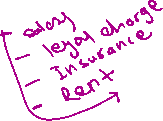 salary
legal charge
Insurance
Rent